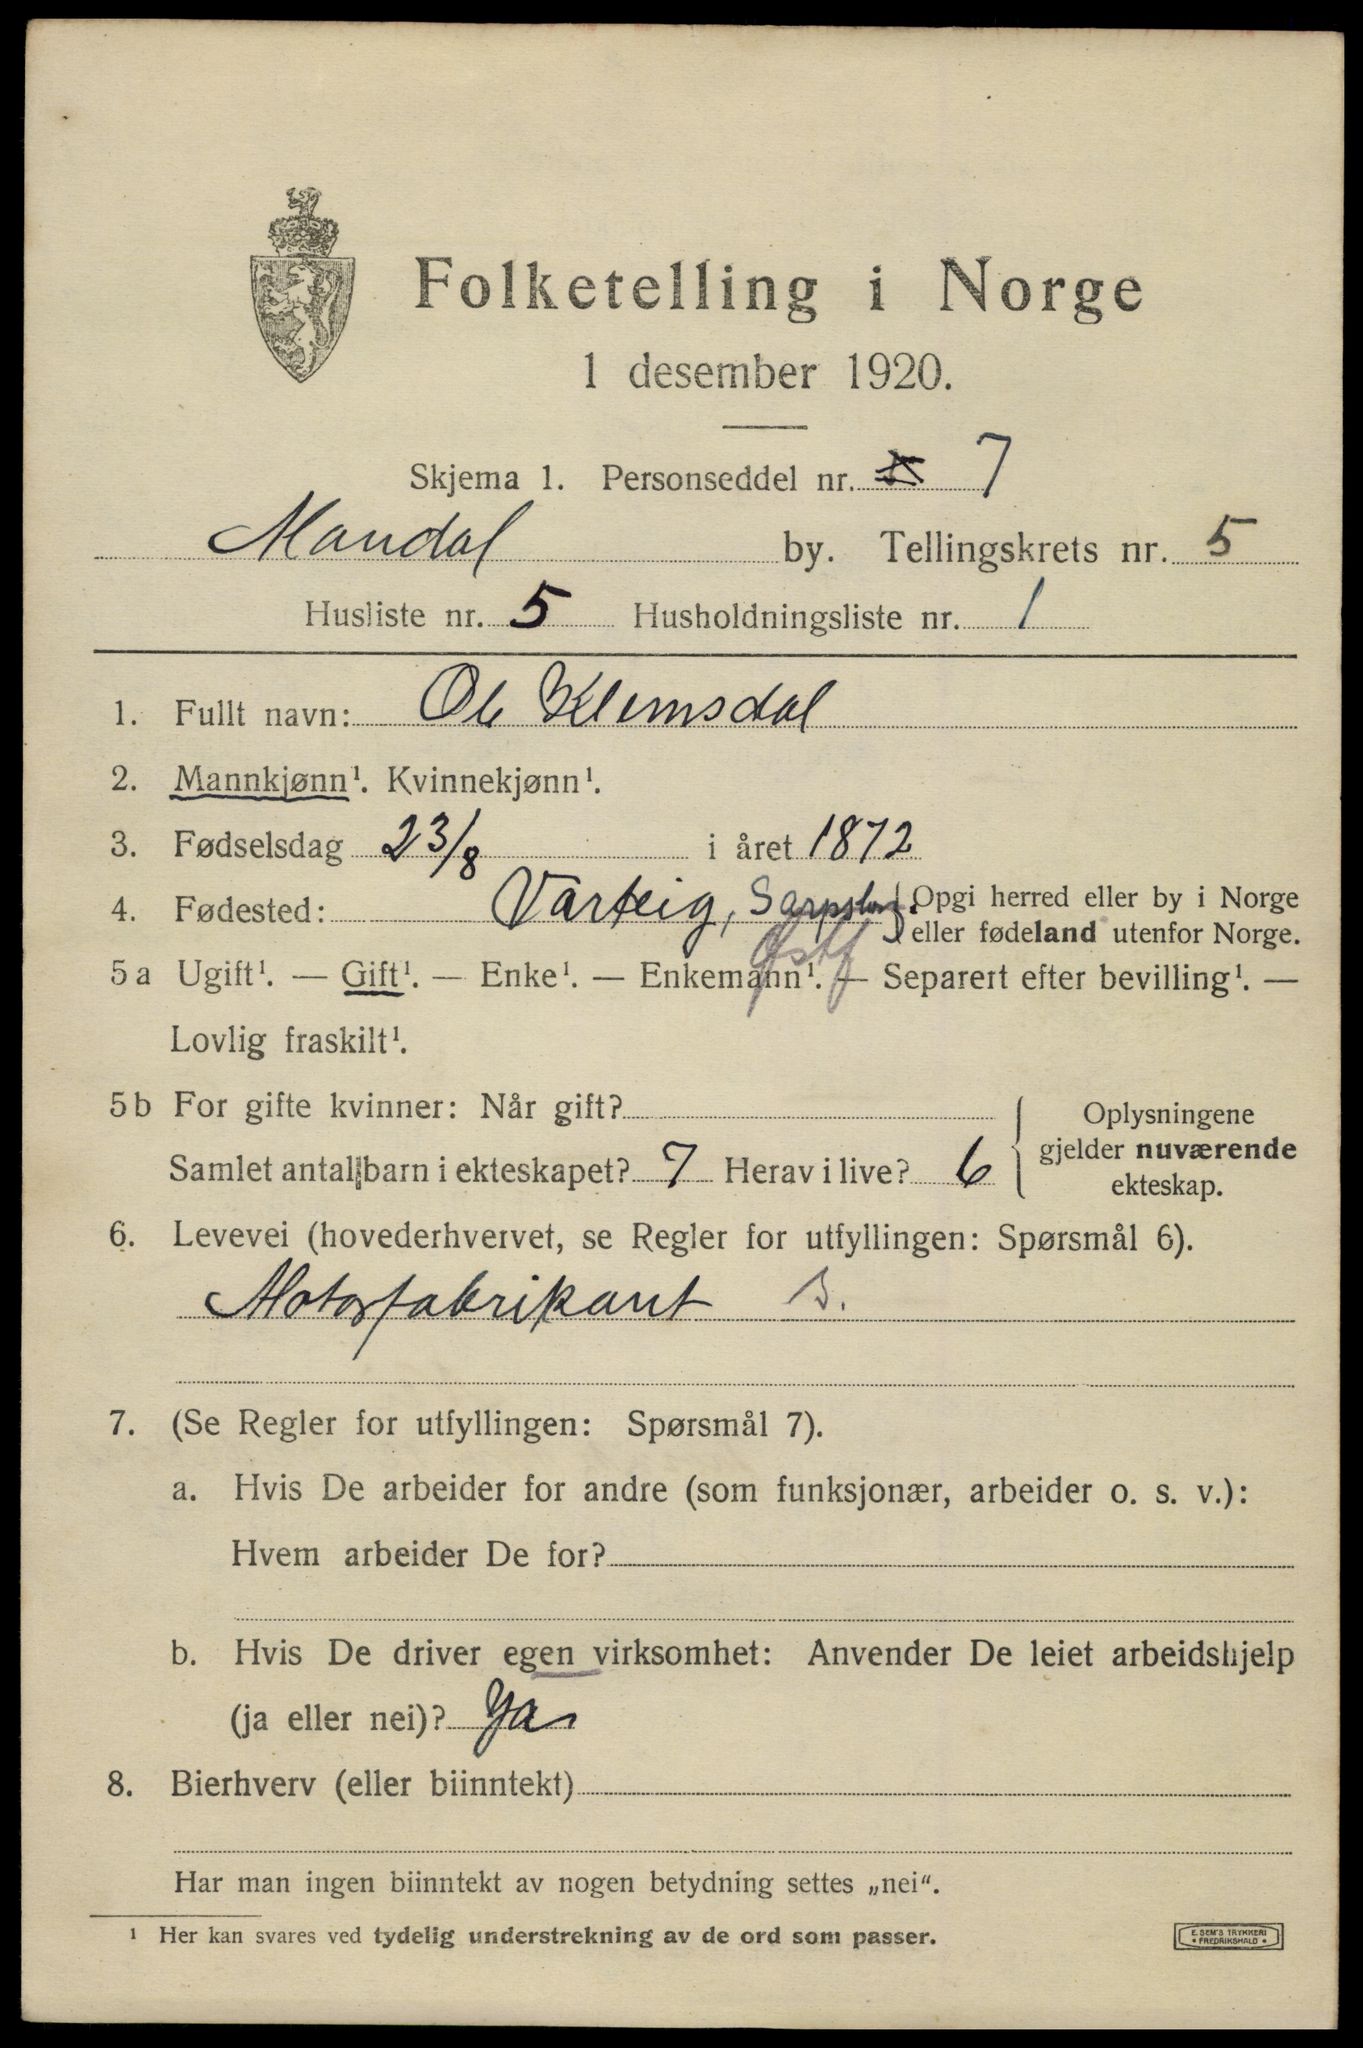 Folketelling i Norge
1 desember 1920.
Skjema 1. Personseddel nr. 7
Mandal by. Tellingskrets nr. 5
Husliste nr. 5 Husholdningsliste nr. 1
1. Fullt navn: Ole Klemsdal
2. Mannkjønn¹. Kvinnekjønn¹.
3. Fødselsdag 23/8 i året 1872
4. Fødested: Varteig, Sarpsborg. Opgi herred eller by i Norge
eller fødeland utenfor Norge.
Østf
5a Ugift¹. — Gift¹. — Enke¹. — Enkemann¹. — Separert efter bevilling¹. —
Lovlig fraskilt¹.
5b For gifte kvinner: Når gift? Oplysningene
gjelder nuværende
Samlet antal barn i ekteskapet? 7 Herav i live? 6
ekteskap.
6. Levevei (hovederhvervet, se Regler for utfyllingen: Spørsmål 6).
Motorfabrikant B.
7. (Se Regler for utfyllingen: Spørsmål 7).
a. Hvis De arbeider for andre (som funksjonær, arbeider o. s. v.):
Hvem arbeider De for?
b. Hvis De driver egen virksomhet: Anvender De leiet arbeidshjelp
(ja eller nei)? Ja
8. Bierhverv (eller biinntekt)
Har man ingen biinntekt av nogen betydning settes „nei“.
¹ Her kan svares ved tydelig understrekning av de ord som passer.
E. SEM'S TRYKKERI
• FREDRIKSHALD •